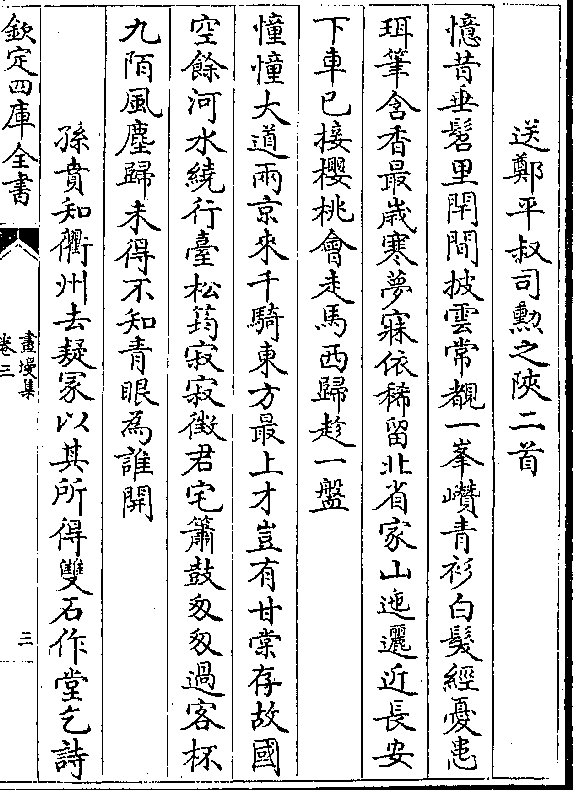 送鄭平叔司勲之陜二首
憶昔垂髫里閈間披雲常覩一峯巑青衫白髮經憂患
珥筆含香最歲寒夢寐依稀留北省家山迤邐近長安
下車已接櫻桃會走馬西歸趁一盤
憧憧大道兩京來千騎東方最上才豈有甘棠存故國
空餘河水繞行臺松筠寂寂徴君宅簫鼓匆匆過客杯
九陌風塵歸未得不知青眼為誰開
孫賁知衢州去疑冢以其所得雙石作堂乞詩
欽定四庫全書
畫墁集
卷三
三